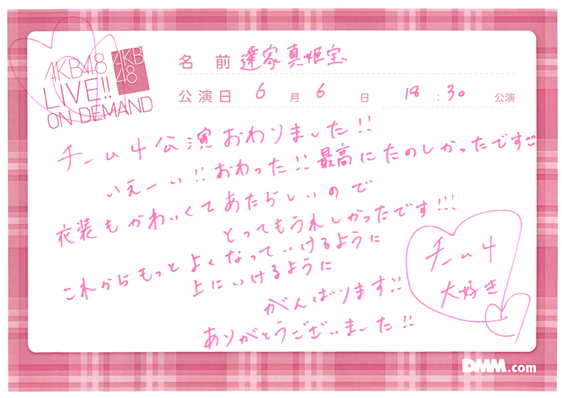 AKB48
LIVE!!
ON DEMAND
AKB
48
名前 達家真姫宝
公演日 6月6日 18:30 公演
チーム4公演おわりました!!
いえーい!!おわった!!最高にたのしかったです
衣装もかわいくてあたらしいので
とってもうれしかったです!!!
これからもっとよくなっていけるように
上にいけるように
がんばります!!
ありがとうございました!!
チーム4
大好き
DMM.com